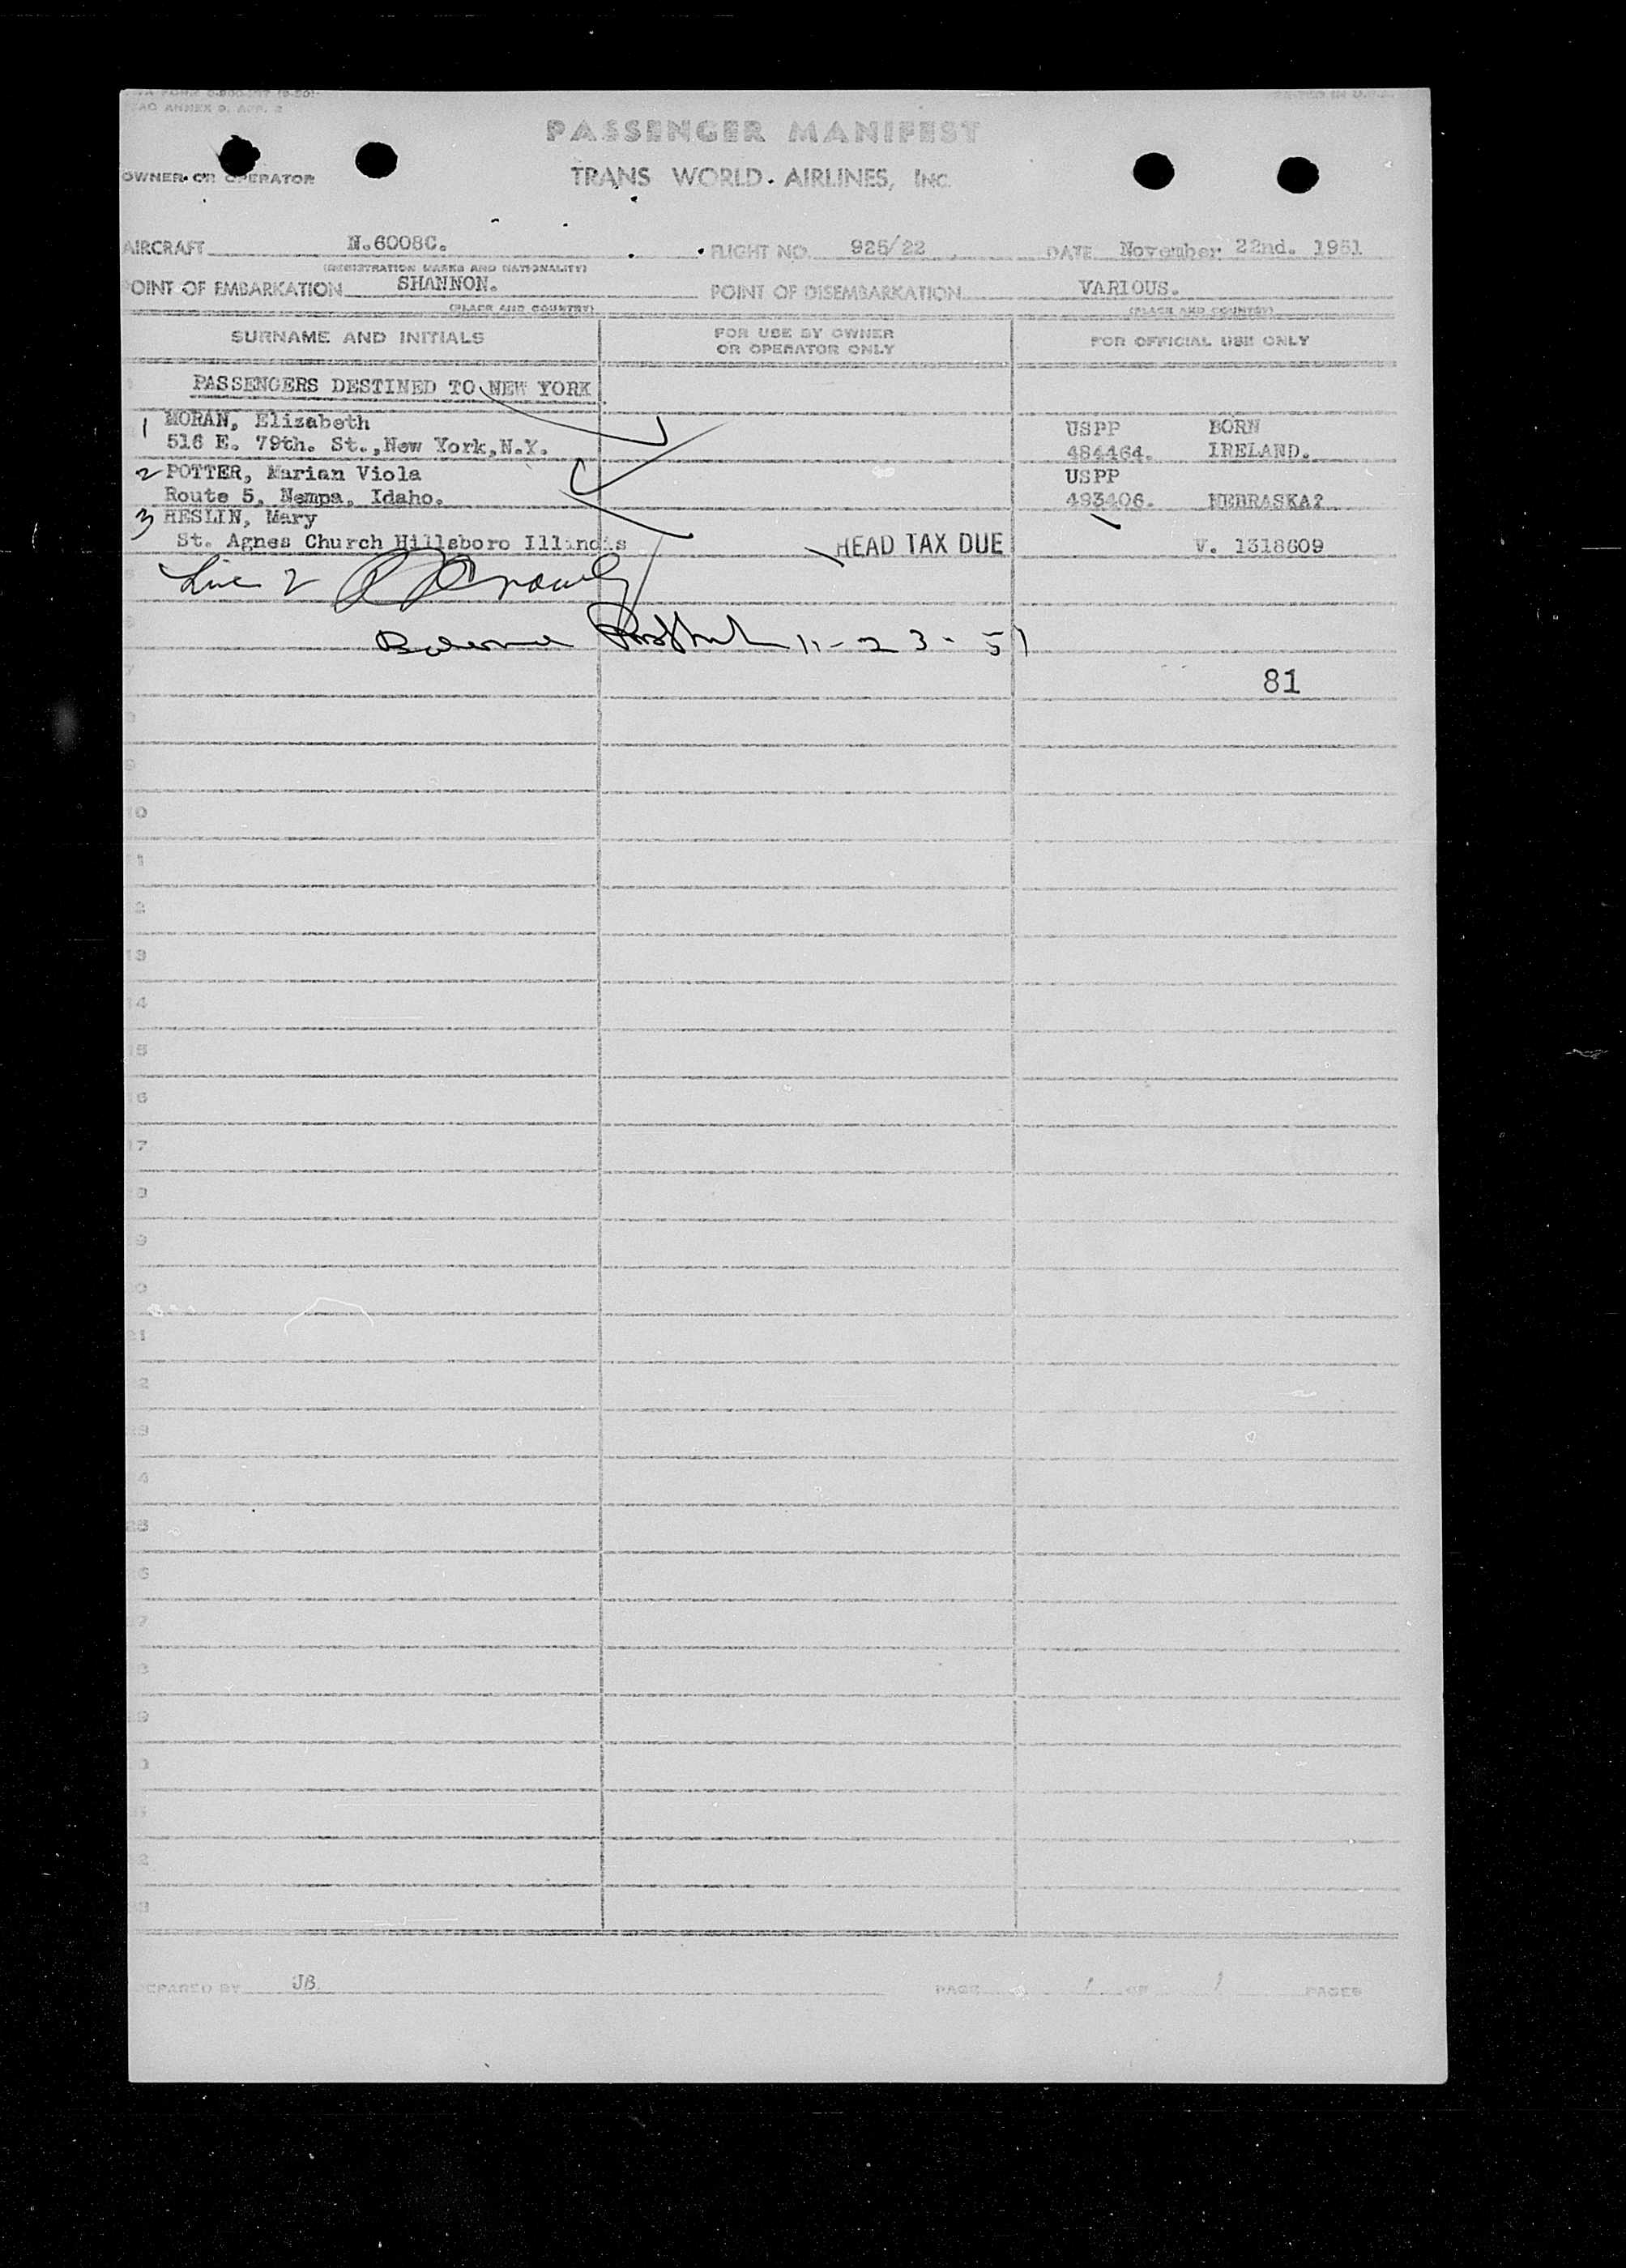 PASSENGER MANIFEST
OWNER OR OPERATOR TRANS WORLD AIRLINES, INC.
AIRCRAFT N.6008C. FLIGHT NO. 925/22 DATE November 22nd. 1951
(REGISTRATION MARKS AND NATIONALITY)
POINT OF EMBARKATION SHANNON. POINT OF DISEMBARKATION VARIOUS.
(PLACE AND COUNTRY) (PLACE AND COUNTRY)
SURNAME AND INITIALS FOR USE BY OWNER OR OPERATOR ONLY FOR OFFICIAL USE ONLY
PASSENGERS DESTINED TO NEW YORK
1 MORAN, Elizabeth USPP BORN
516 E. 79th. St., New York, N.Y. 484464. IRELAND.
2 POTTER, Marian Viola USPP
Route 5, Nempa, Idaho. 493406. NEBRASKA?
3 HESLIN, Mary
St. Agnes Church Hillsboro Illinois HEAD TAX DUE V. 1318609
Line 2
11-23-51
81
10
13
14
15
16
17
21
PREPARED BY JB PAGE 1 OF 1 PAGES